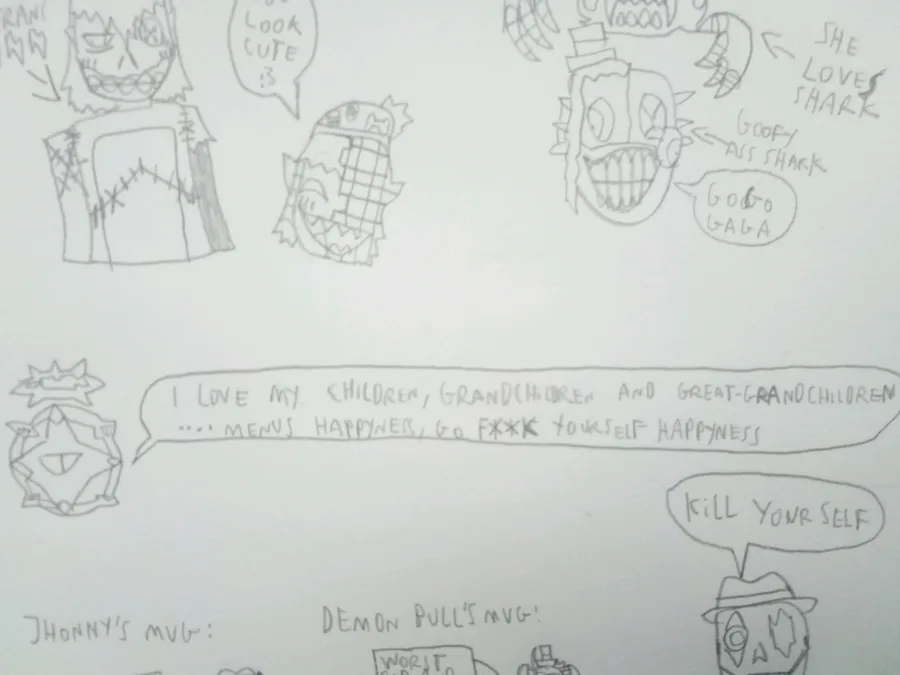 LOOK
CUTE
:3
SHE
LOVES
SHARK
GOOFY
ASS SHARK
GOOGO
GAGA
I LOVE MY CHILDREN, GRANDCHILDREN AND GREAT-GRANDCHILDREN
.... MENUS HAPPYNESS, GO F**K YOURSELF HAPPYNESS
KILL YOURSELF
JHONNY'S MUG:
DEMON BULL'S MUG:
WORST